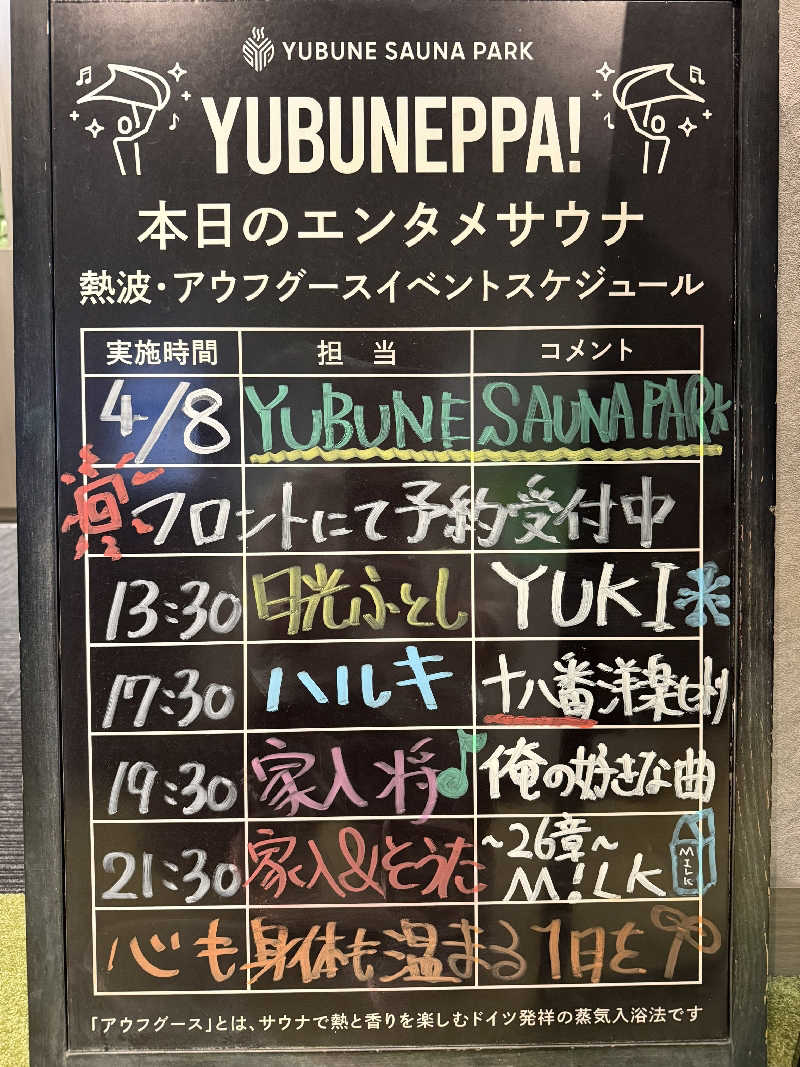 YUBUNE SAUNA PARK
YUBUNEPPA!
本日のエンタメサウナ
熱波・アウフグースイベントスケジュール
実施時間 担当 コメント
4/8 YUBUNE SAUNA PARK
フロントにて予約受付中
13:30 日光ふとし YUKI
17:30 ハルキ 十八番洋楽セトリ
19:30 家入 将 俺の好きな曲
21:30 家入&とうた ~26章~
M!LK
MILK
心も身体も温まる1日を
「アウフグース」とは、サウナで熱と香りを楽しむドイツ発祥の蒸気入浴法です